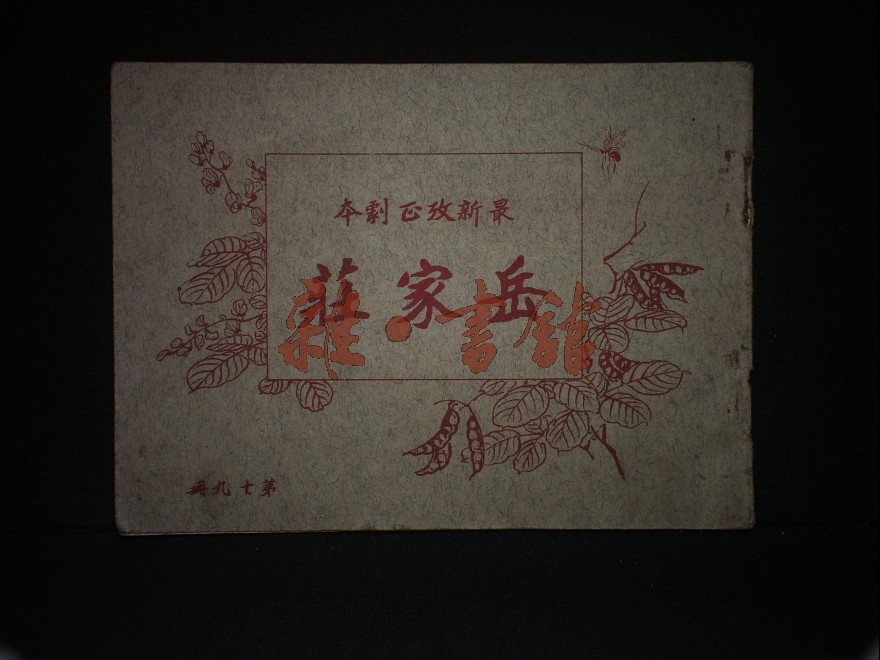 最新改正劇本
岳家莊
雜·書館
第十九冊